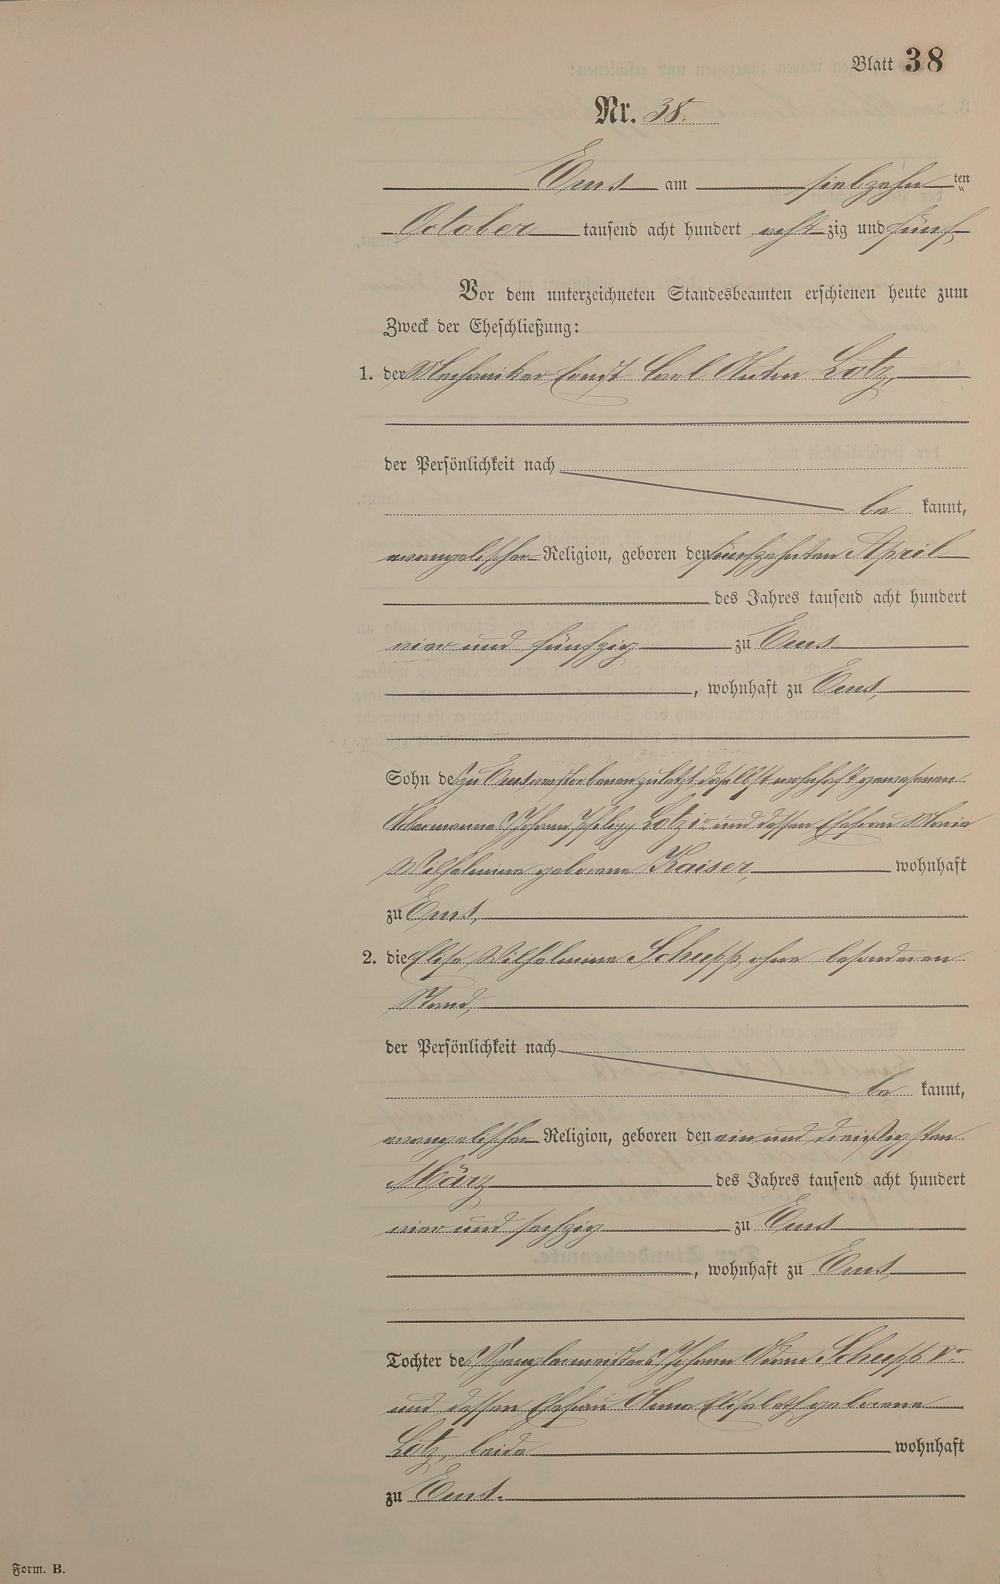 Blatt 38
Nr. 38.
Ems am siebzehn ten
October tausend acht hundert acht zig und fünf
Vor dem unterzeichneten Standesbeamten erschienen heute zum
Zweck der Eheschließung:
1. der Mechaniker Ernst Carl Anton Lotz,
der Persönlichkeit nach
be kannt,
evangelischer Religion, geboren den fünfzehnten April
des Jahres tausend acht hundert
vier und fünfzig zu Ems
, wohnhaft zu Ems,
Sohn des zu Ems verstorbenen zuletzt daselbst wohnhaft gewesenen
Johann Philipp Lotz und dessen Ehefrau Maria
Wilhelmine geborene Kaiser, wohnhaft
zu Ems,
2. die Elise Wilhelmine Schupp, ohne besonderen
Stand,
der Persönlichkeit nach
be kannt,
evangelischer Religion, geboren den ein und dreißigsten
März des Jahres tausend acht hundert
vier und sechzig zu Ems
, wohnhaft zu Ems,
Tochter des Spenglermeisters Johann Adam Schupp Vr
und dessen Ehefrau Anna Elisabeth geborene
Lotz, beide wohnhaft
zu Ems.
Form. B.